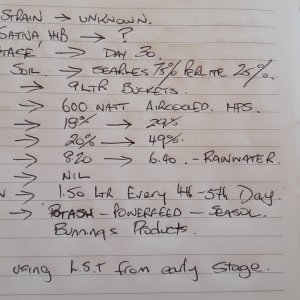 STRAIN → UNKNOWN.
SATIVA HYB → ?
STAGE → DAY 30.
SOIL. → SEARLES 75% PERLITE 25%.
→ 9 LTR BUCKETS.
→ 600 WATT AIRCOOLED HPS.
→ 19% → 29%
→ 20% → 49%
→ 820 → 6.40. - RAINWATER.
→ NIL
→ 1.50 LTR Every 4th - 5th Day.
→ POTASH - POWERFEED - SEASOL.
Bunnings Products.
using L.S.T from early stage.